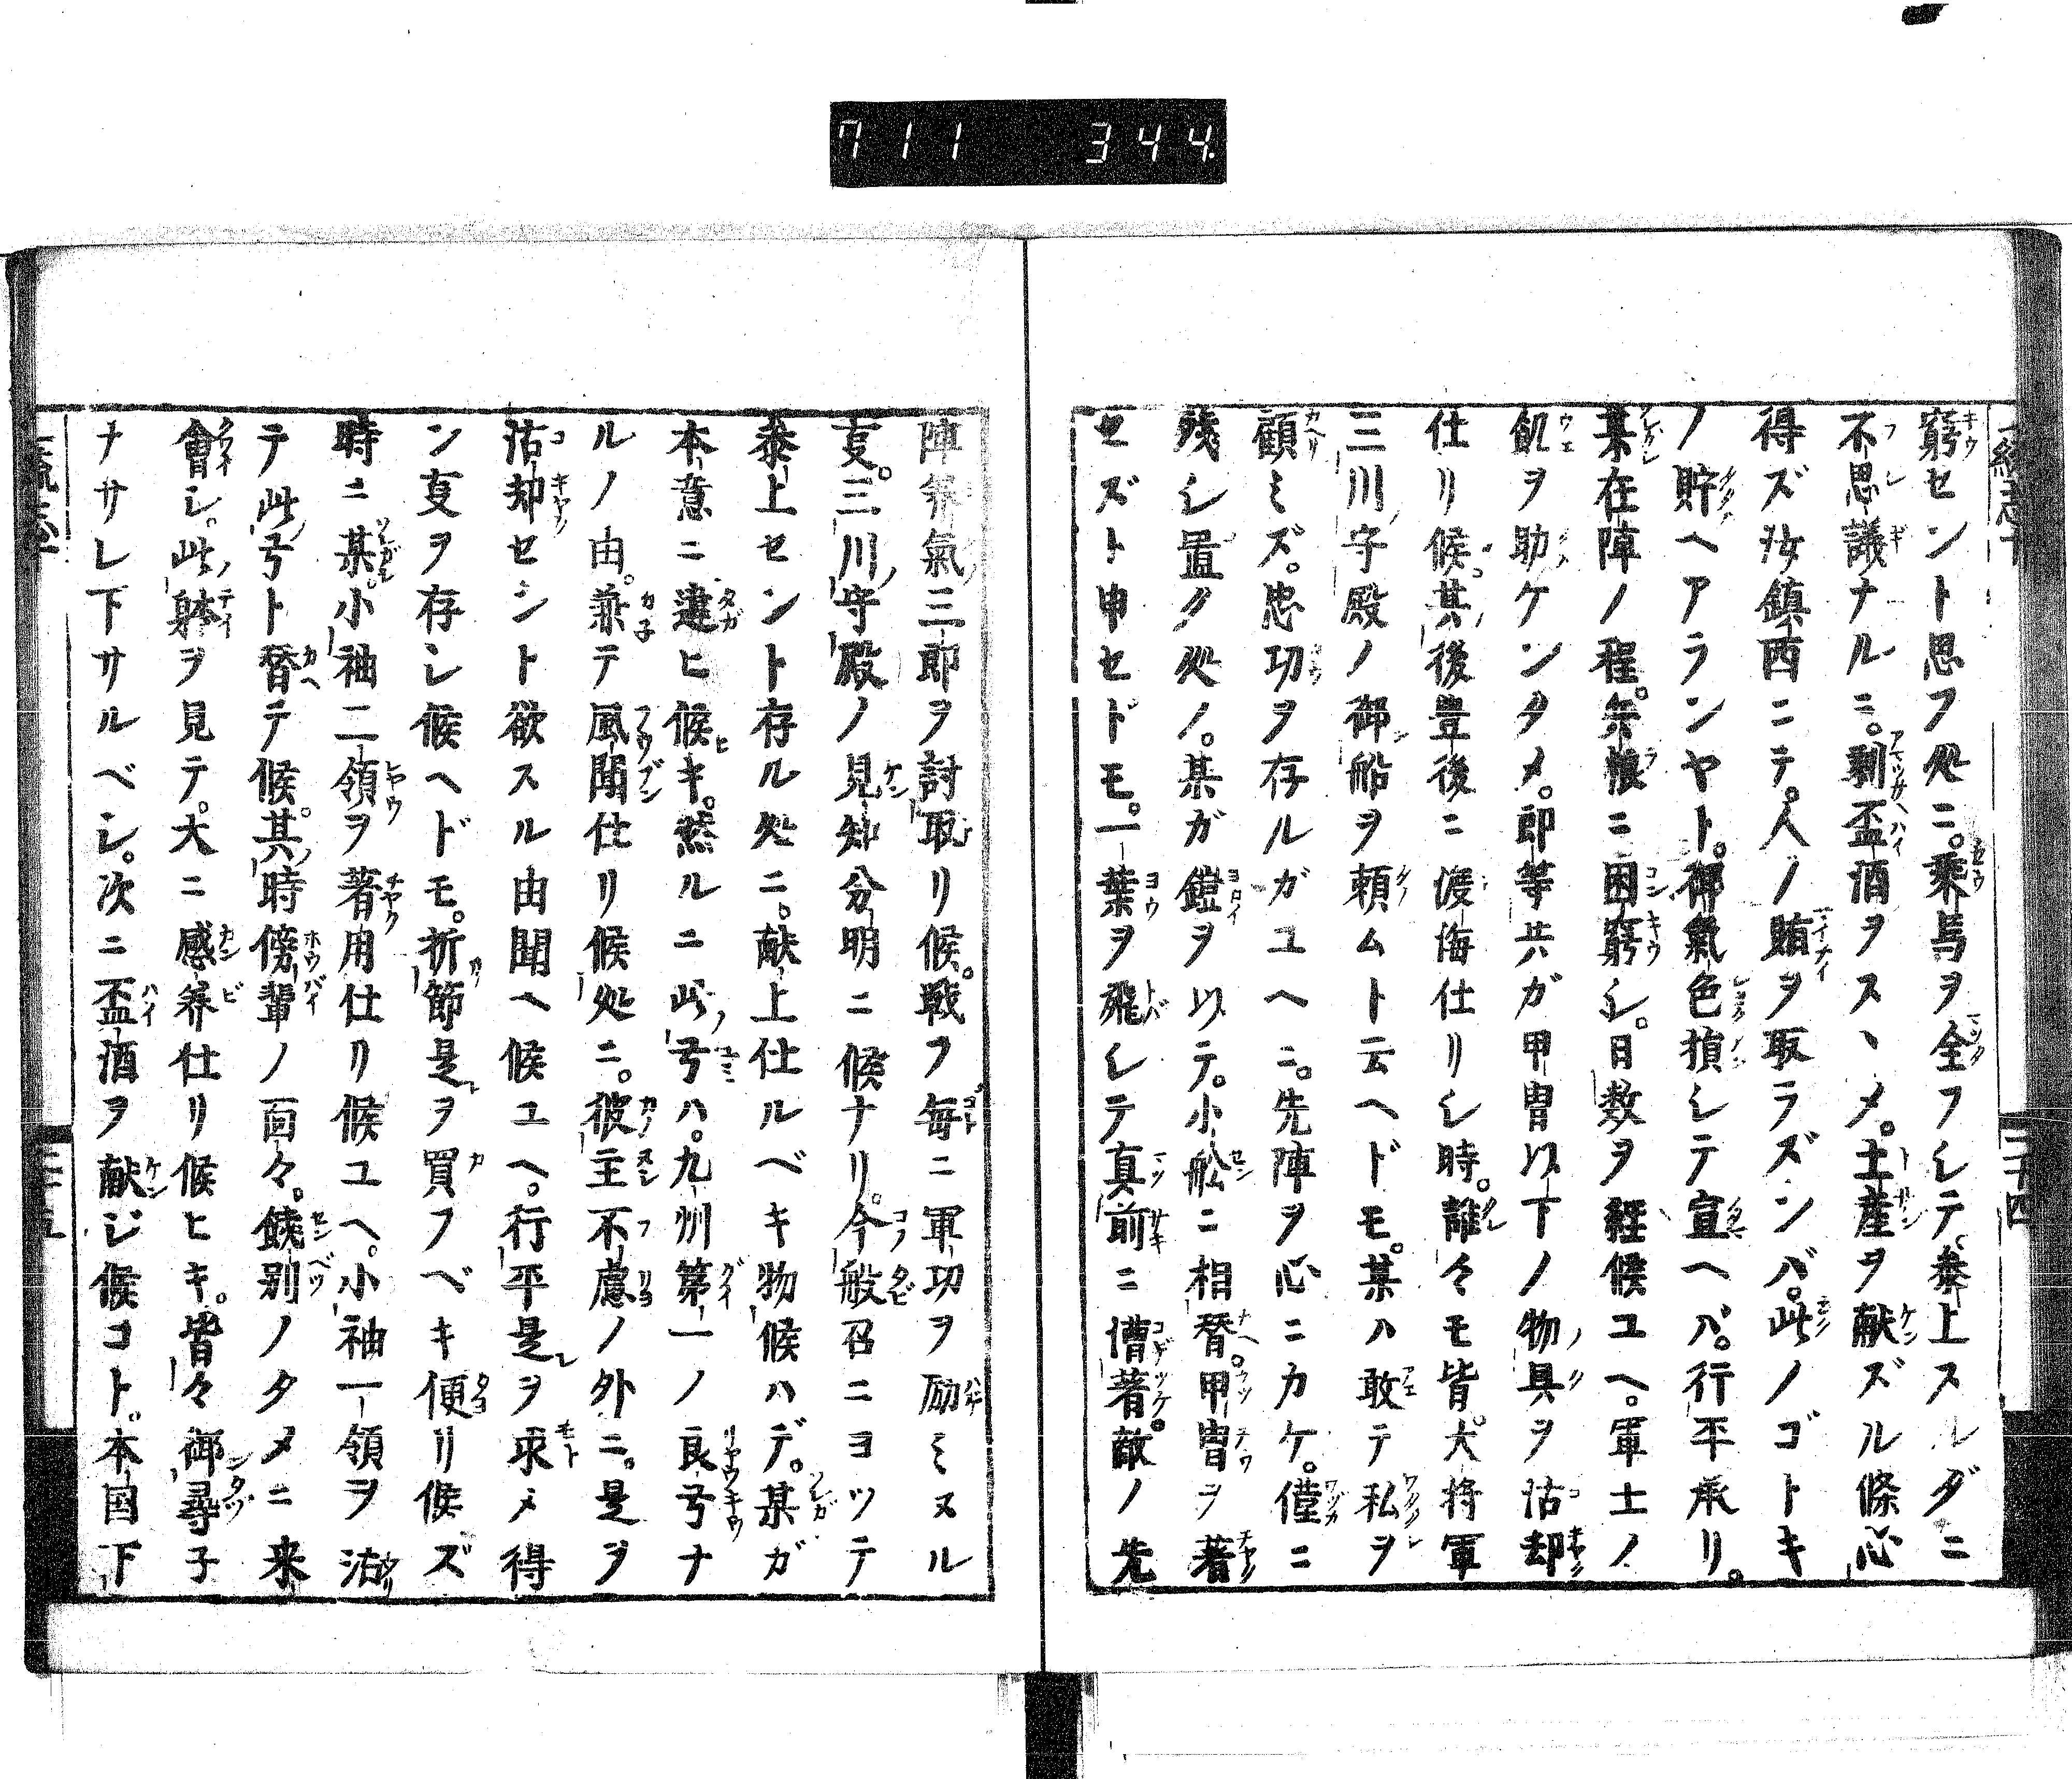 711 344
窮セント思フ処ニ。乗馬ヲ全フシテ。参上スルダニ
不思議ナルニ。剰盃酒ヲスヽメ。土産ヲ献ズル條心
得ズ汝鎮西ニテ。人ノ賄ヲ取ラズンバ。此ノゴトキ
ノ貯ヘアランヤト。御氣色損シテ宣ヘバ。行平承リ。
某在陣ノ程。粮ニ困窮シ。日数ヲ経候ユヘ。軍士ノ
飢ヲ助ケンタメ。郎等共ガ甲冑以下ノ物具ヲ沽却
仕リ候。其後豊後ニ渡海仕リシ時。誰々モ皆。大将軍
三川守殿ノ御船ヲ頼ムト云ヘドモ。某ハ敢テ私ヲ
顧ミズ。忠功ヲ存ルガユヘニ。先陣ヲ心ニカケ。僅ニ
残シ置ク処ノ。某ガ鎧ヲ以テ。小舩ニ相替。甲冑ヲ著
セズト申セドモ。一葉ヲ飛シテ真前ニ漕著。敵ノ先
陣美氣三郎ヲ討取リ候。戦フ毎ニ軍功ヲ励ミヌル
叓。三川守殿ノ見知分明ニ候ナリ。今般召ニヨツテ
参上セント存ル処ニ。献上仕ルベキ物候ハデ。某ガ
本意ニ違ヒ候キ。然ルニ此弓ハ。九州第一ノ良弓ナ
ルノ由。兼テ風聞仕リ候処ニ。彼主不慮ノ外ニ。是ヲ
沽却セシト欲スル由聞ヘ候ユヘ。行平是ヲ求メ得
ン叓ヲ存シ候ヘドモ。折節是ヲ買フベキ便リ候ズ
時ニ某。小袖二領ヲ著用仕リ候ユヘ。小袖一領ヲ沽
テ此弓ト替テ候。其時傍輩ノ面々。餞別ノタメニ来
會シ。此躰ヲ見テ。大ニ感美仕リ候ヒキ。皆々御尋子
ナサレ下サルベシ。次ニ盃酒ヲ献ジ候コト。本国下